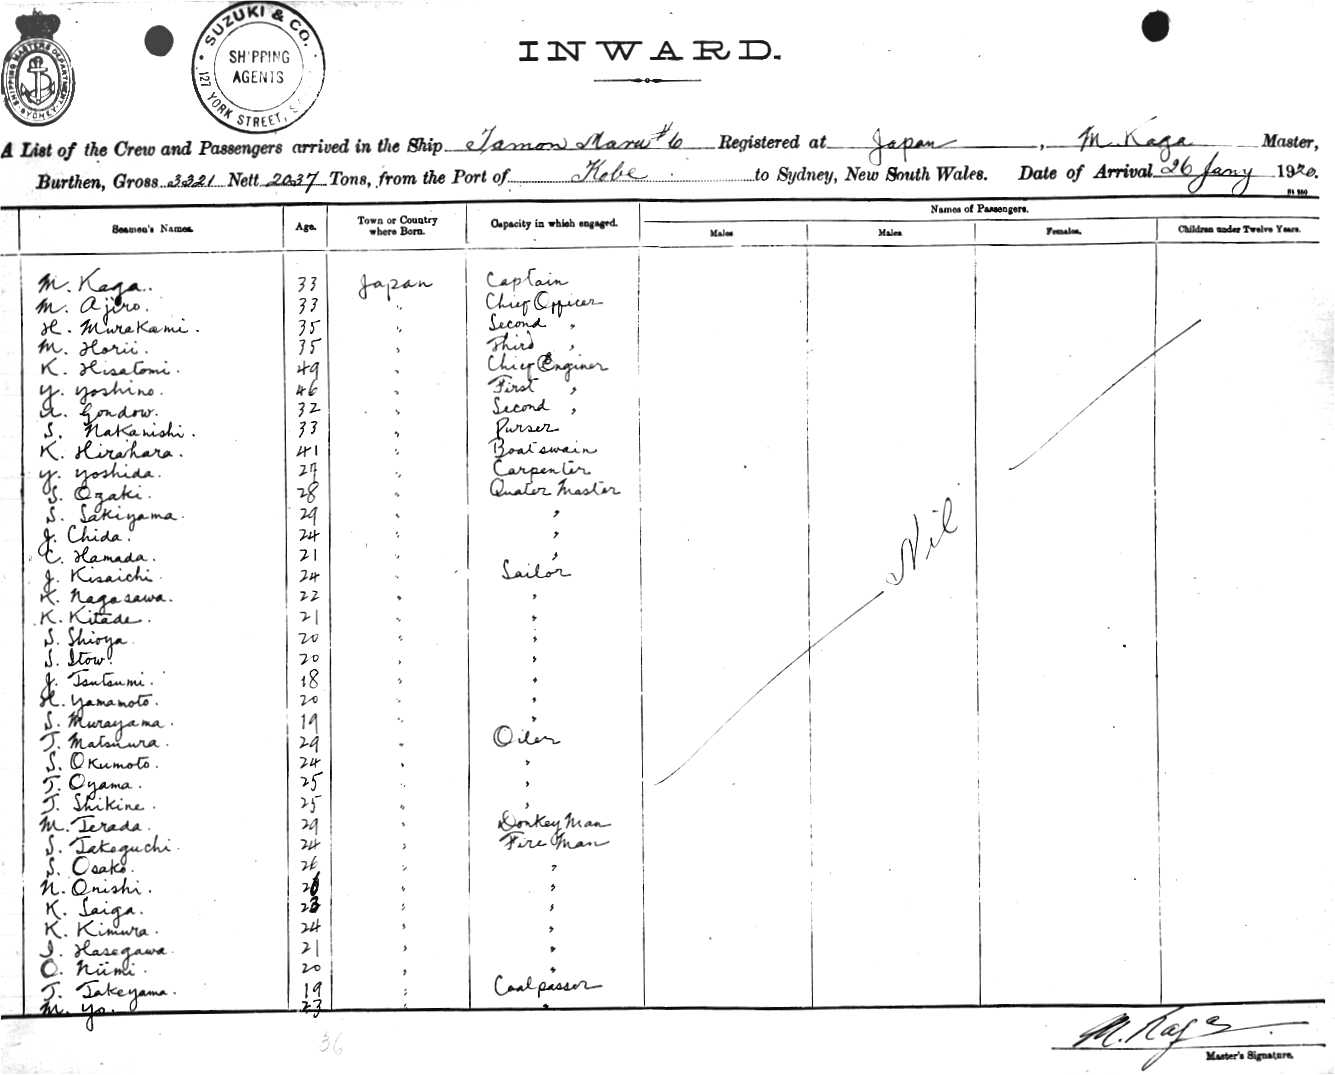 SHIPPING MASTERS DEPARTMENT
SYDNEY
SUZUKI & CO.
SHIPPING
AGENTS
127 YORK STREET, S
INWARD.
A List of the Crew and Passengers arrived in the Ship Tamon Maru #6 Registered at Japan, M. Kaga Master,
Burthen, Gross 3321 Nett 2037 Tons, from the Port of Kobe to Sydney, New South Wales. Date of Arrival 26 Jany 1920.
Names of Passengers.
Seamen's Names. Age. Town or Country where Born. Capacity in which engaged. Males Males Females. Children under Twelve Years.
M. Kaga. 33 Japan Captain
M. Ajiro. 33 " Chief Officer
H. Murakami. 35 " Second "
M. Horii. 35 " Third "
K. Hisatomi. 49 " Chief Enginer
Y. Yoshino. 46 " First "
A. Gondow. 32 " Second "
S. Nakanishi. 33 " Purser
K. Hirahara. 41 " Boatswain
Y. Yoshida. 27 " Carpenter
S. Ozaki. 28 " Quater Master
S. Sakiyama. 29 " "
J. Chida. 24 " "
C. Hamada. 21 " "
J. Kisaichi. 24 " Sailor
K. Nagasawa. 22 " "
K. Kitade. 21 " "
S. Shioya. 20 " "
S. Itow. 20 " "
J. Tsutsumi. 18 " "
H. Yamamoto. 20 " "
S. Murayama. 19 " "
T. Matsuura. 29 " Oiler
S. Okumoto. 24 " "
T. Oyama. 25 " "
T. Shikine. 25 " "
M. Terada. 29 " Donkey Man
S. Takeguchi. 24 " Fire Man
S. Osako. 26 " "
N. Onishi. " "
K. Saiga. 23 " "
K. Kimura. 24 " "
I. Hasegawa. 21 " "
O. Niimi. 20 " "
T. Takeyama. 19 " Coalpasser
M. Yo. 23 " "
Nil
36
M. Kaga.
Master's Signature.